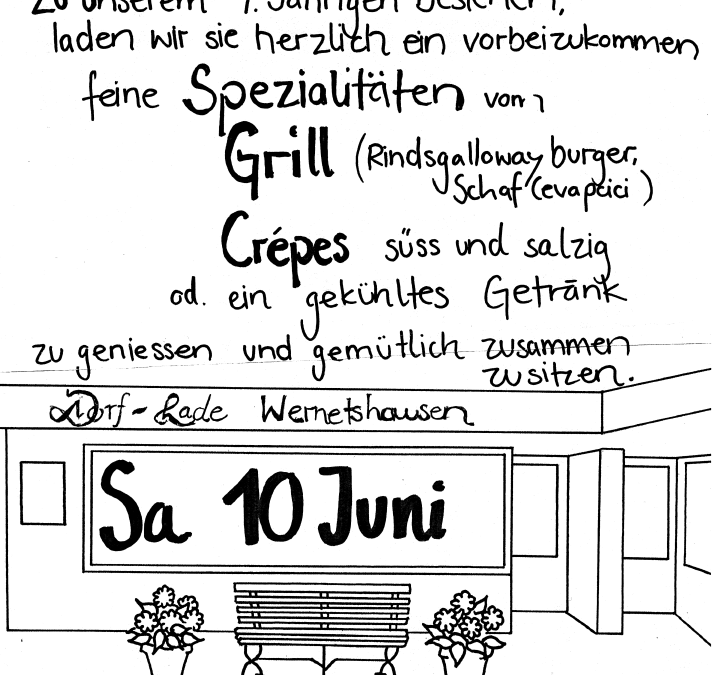 zu unserem 1. Jährigen
laden wir sie herzlich ein vorbeizukommen
feine Spezialitäten vom
Grill (Rindsgalloway burger,
Schaf Cevapcici )
Crépes süss und salzig
od. ein gekühltes Getränk
zu geniessen und gemütlich zusammen
zu sitzen.
Dorf-Lade Wernetshausen
Sa 10 Juni